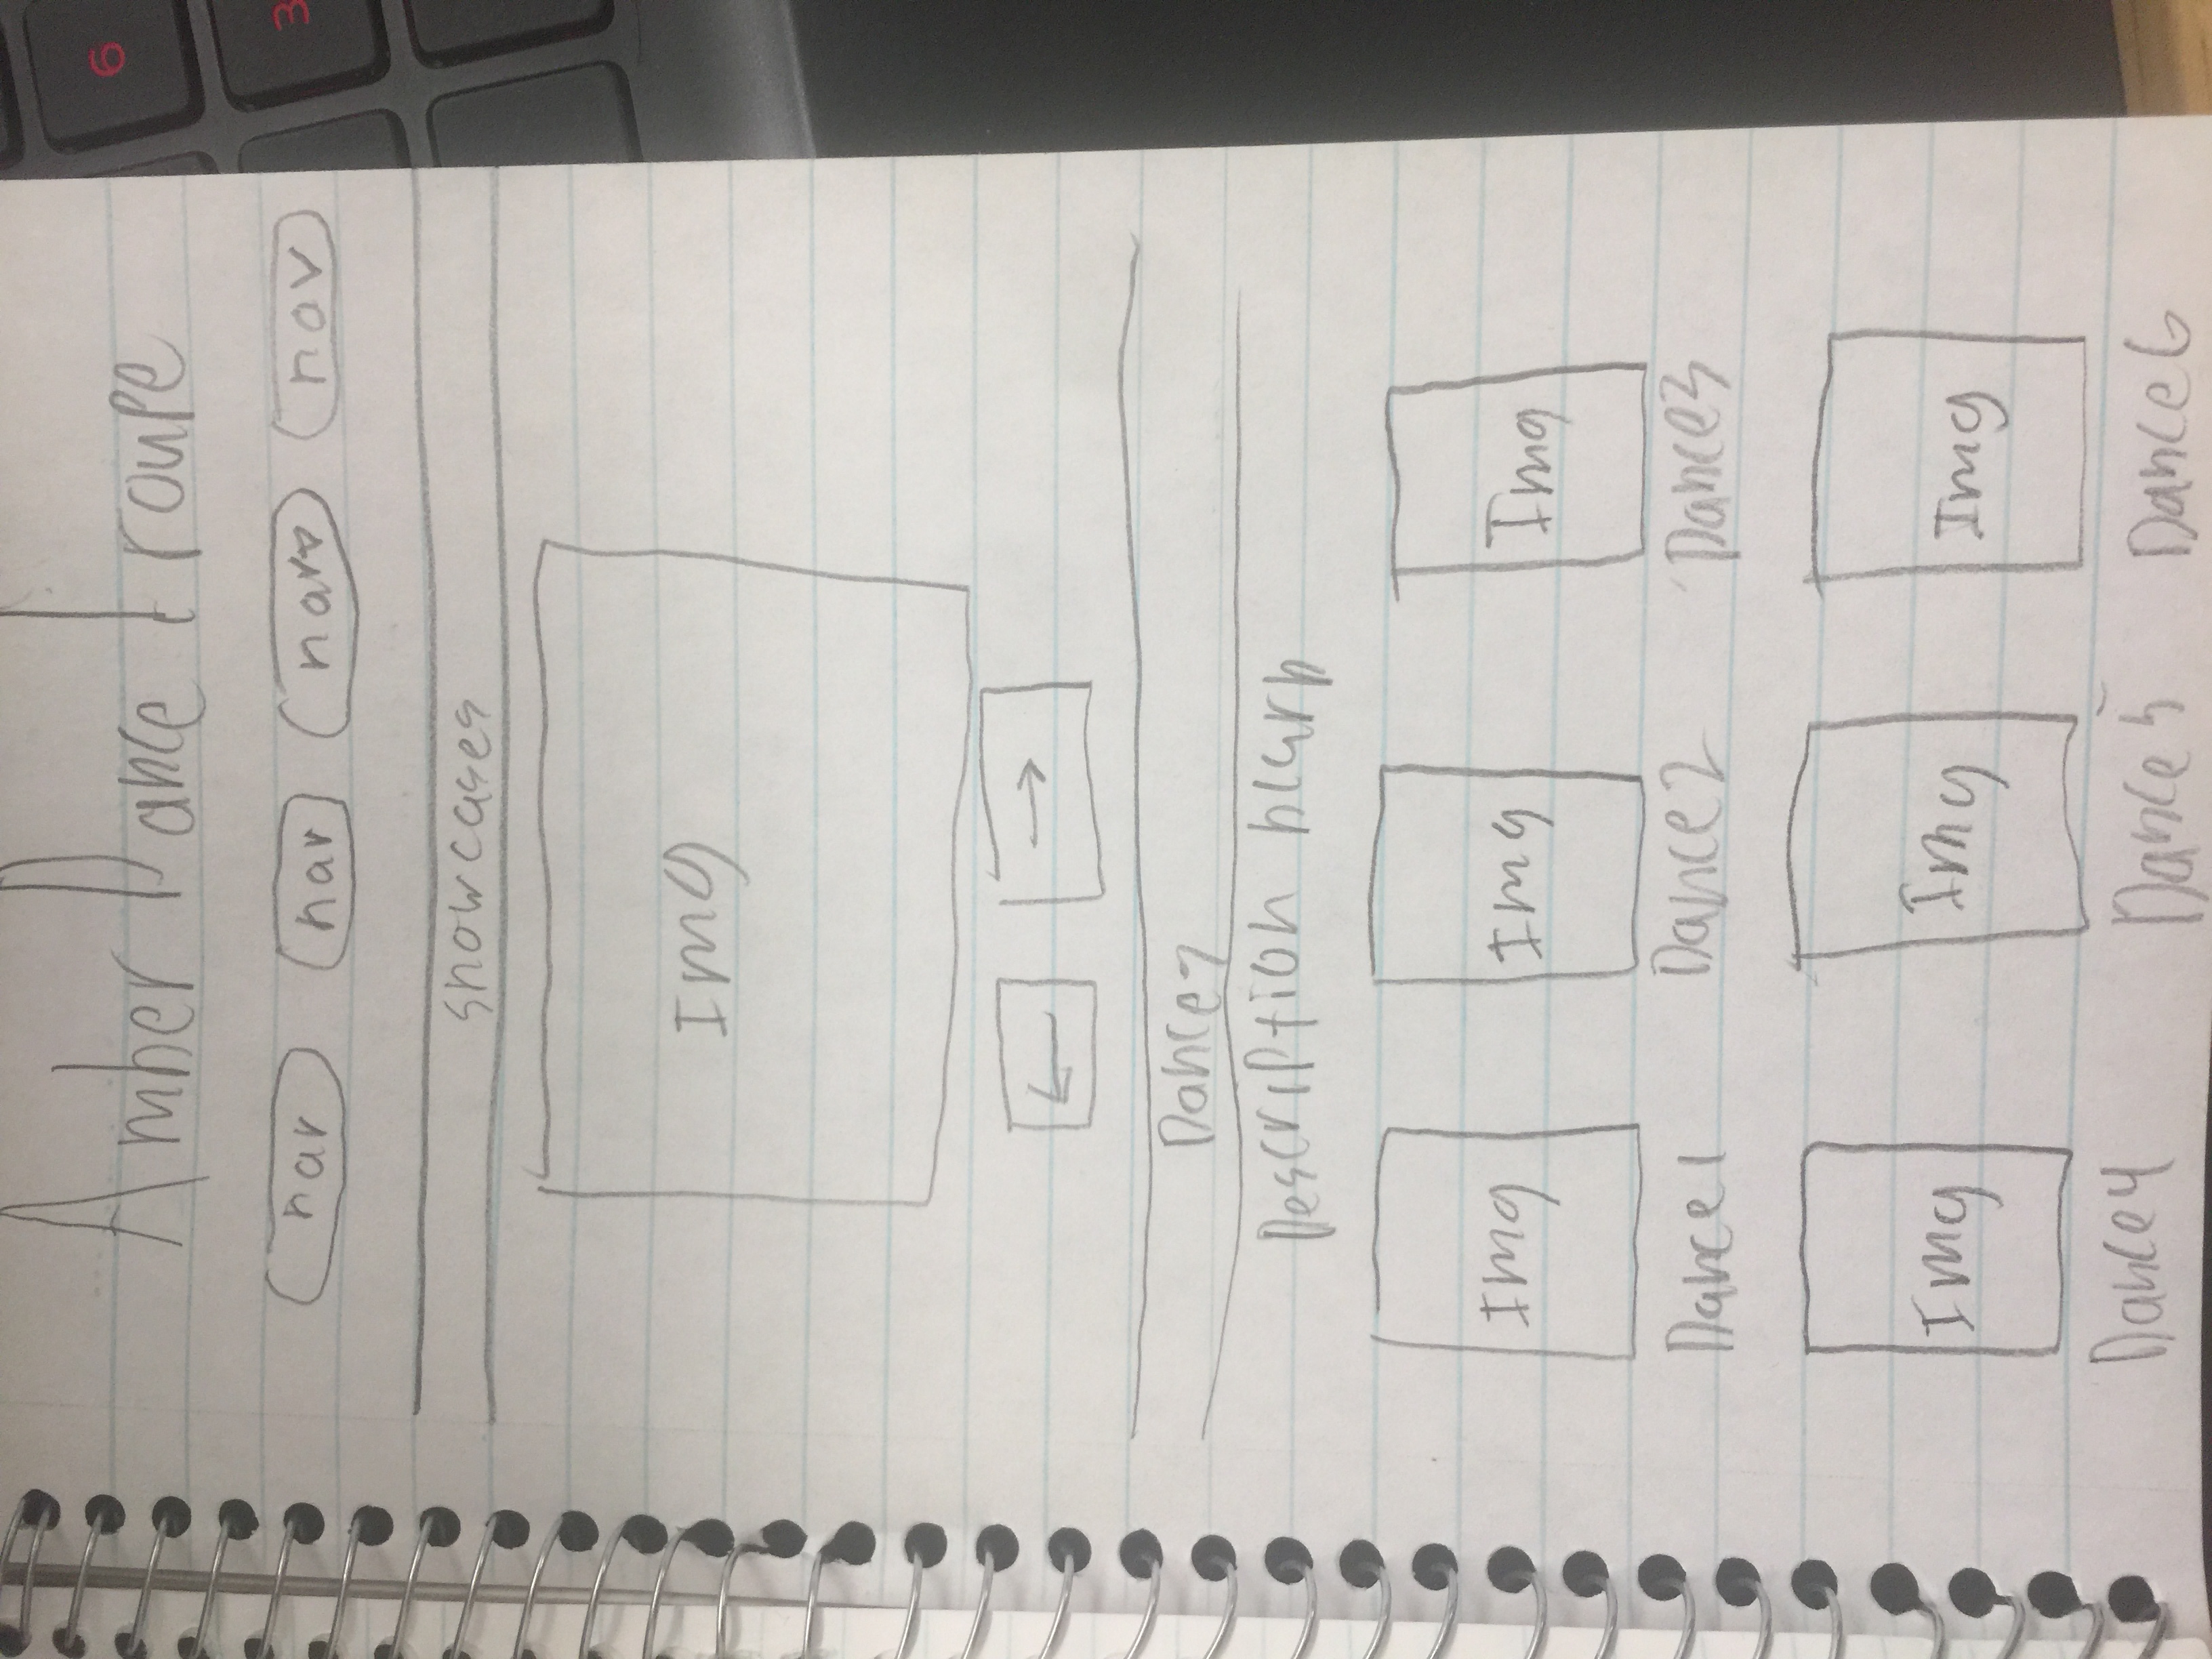 Amber Dance Troupe
nav nav nav nav
showcases
Img
Dances
Description blurb
Img Img Img
Dance1 Dance2 Dance3
Img Img Img
Dance4 Dance5 Dance6
6
3